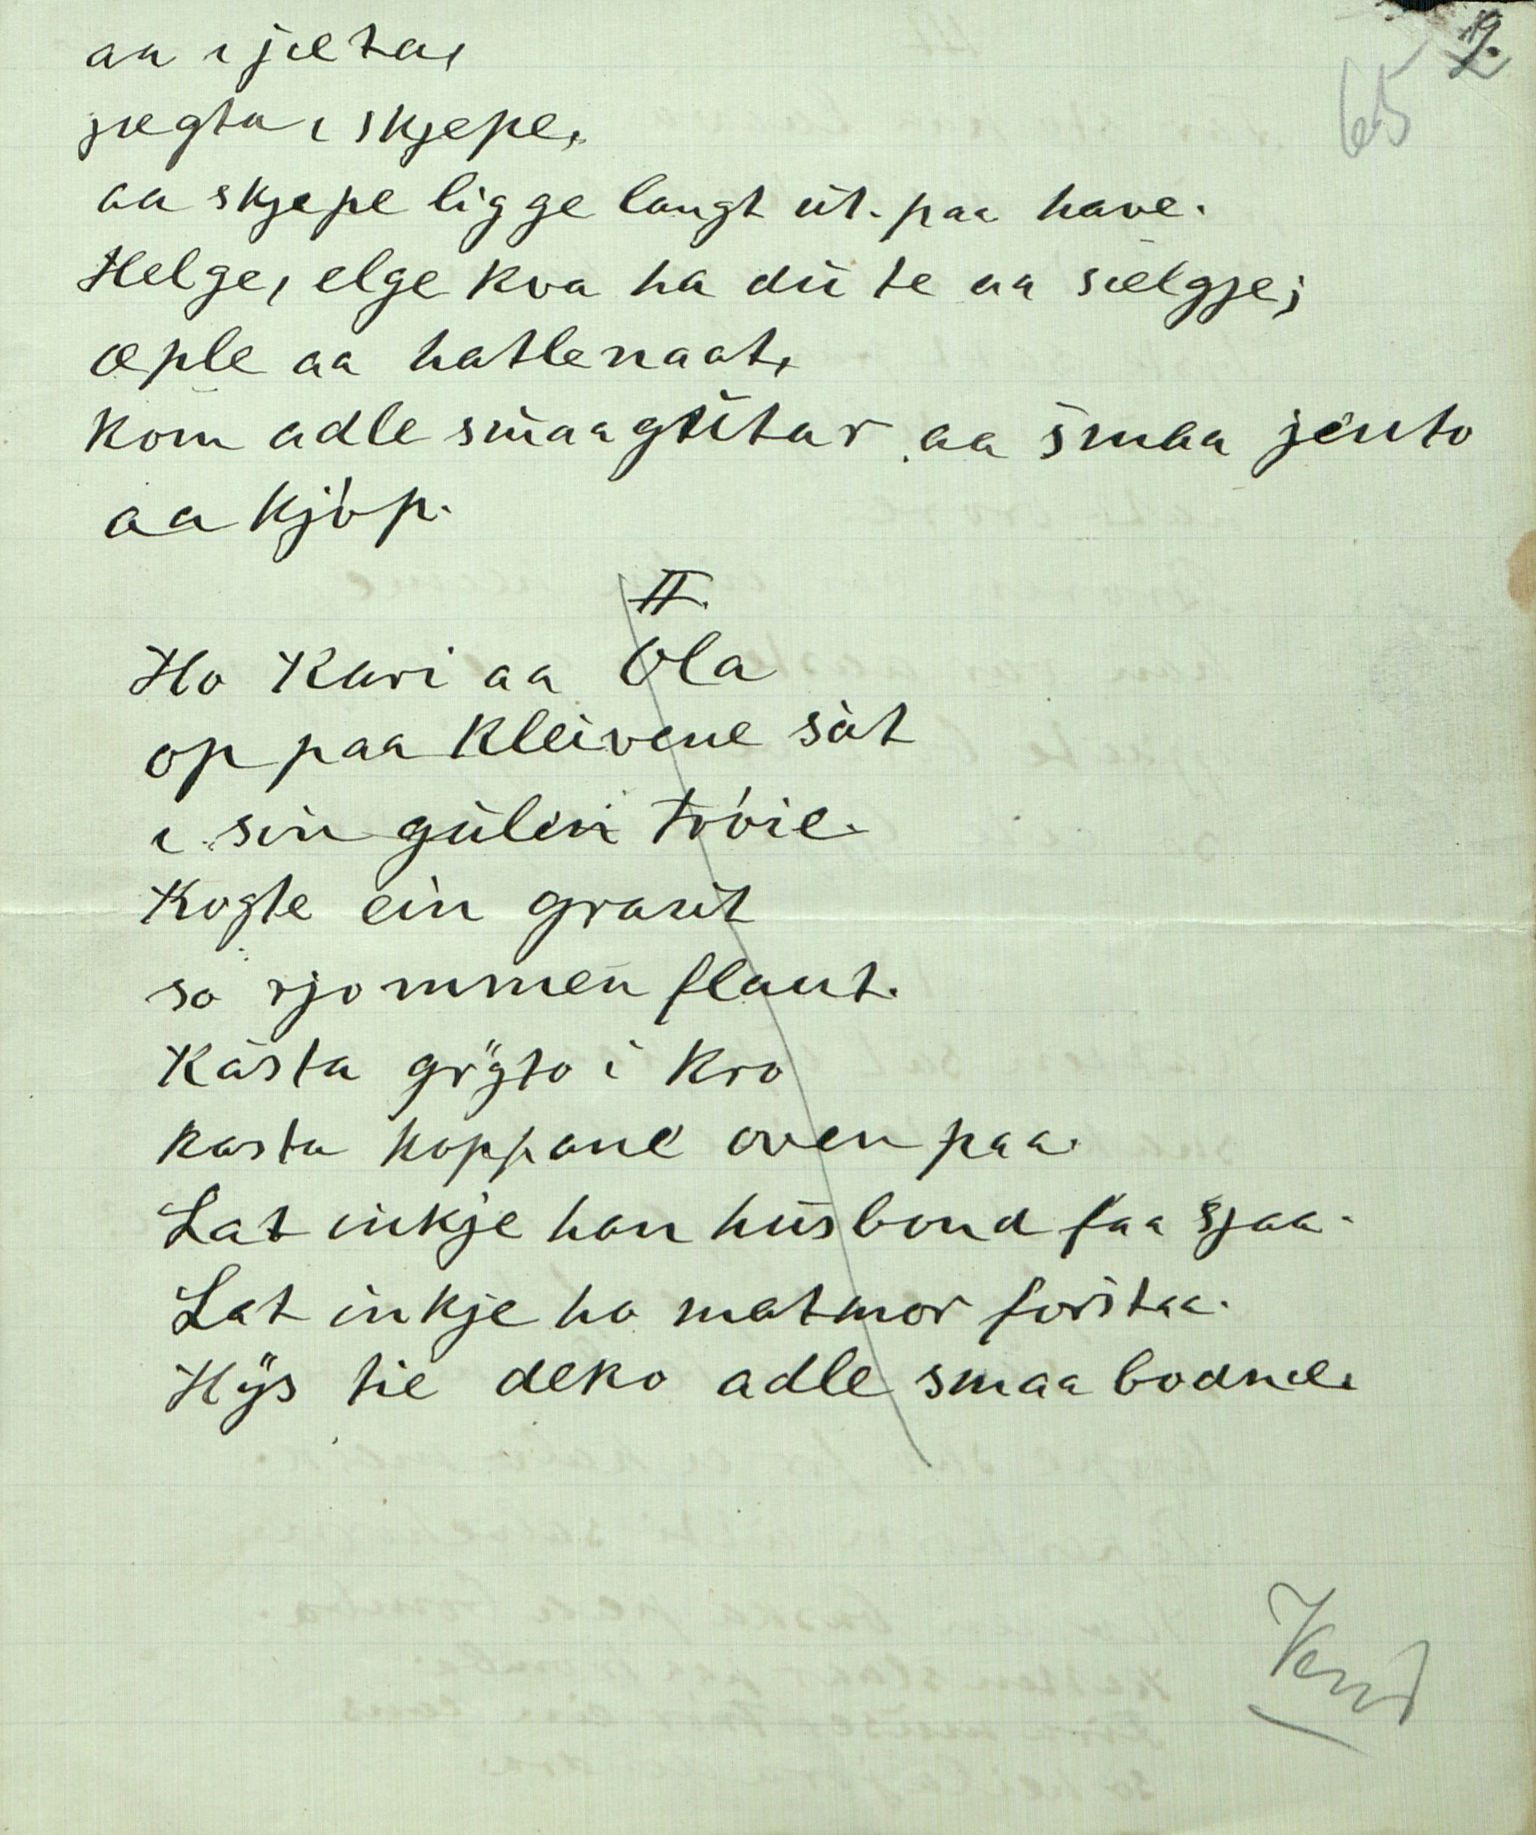 19.
65
aa i jæta,
jægta i skjepe,
aa skjepe ligge langt üt. paa have.
Helge, elge kva ha dü te aa sælgje;
æple aa hatlenaat,
kom adle smaagütar aa smaa jento
aa kjöp.
II.
Ho Kari aa Ola
op paa Kleivene sat
i sin gülin tröie.
Kogte ein graut
so rjommen flaut.
Kasta gryto i kro
kasta koppane oven paa.
Lat inkje han hüsbond faa sjaa.
Lat inkje ho matmor forstaa.
Hys tie deko adle smaa bodne.
Vend